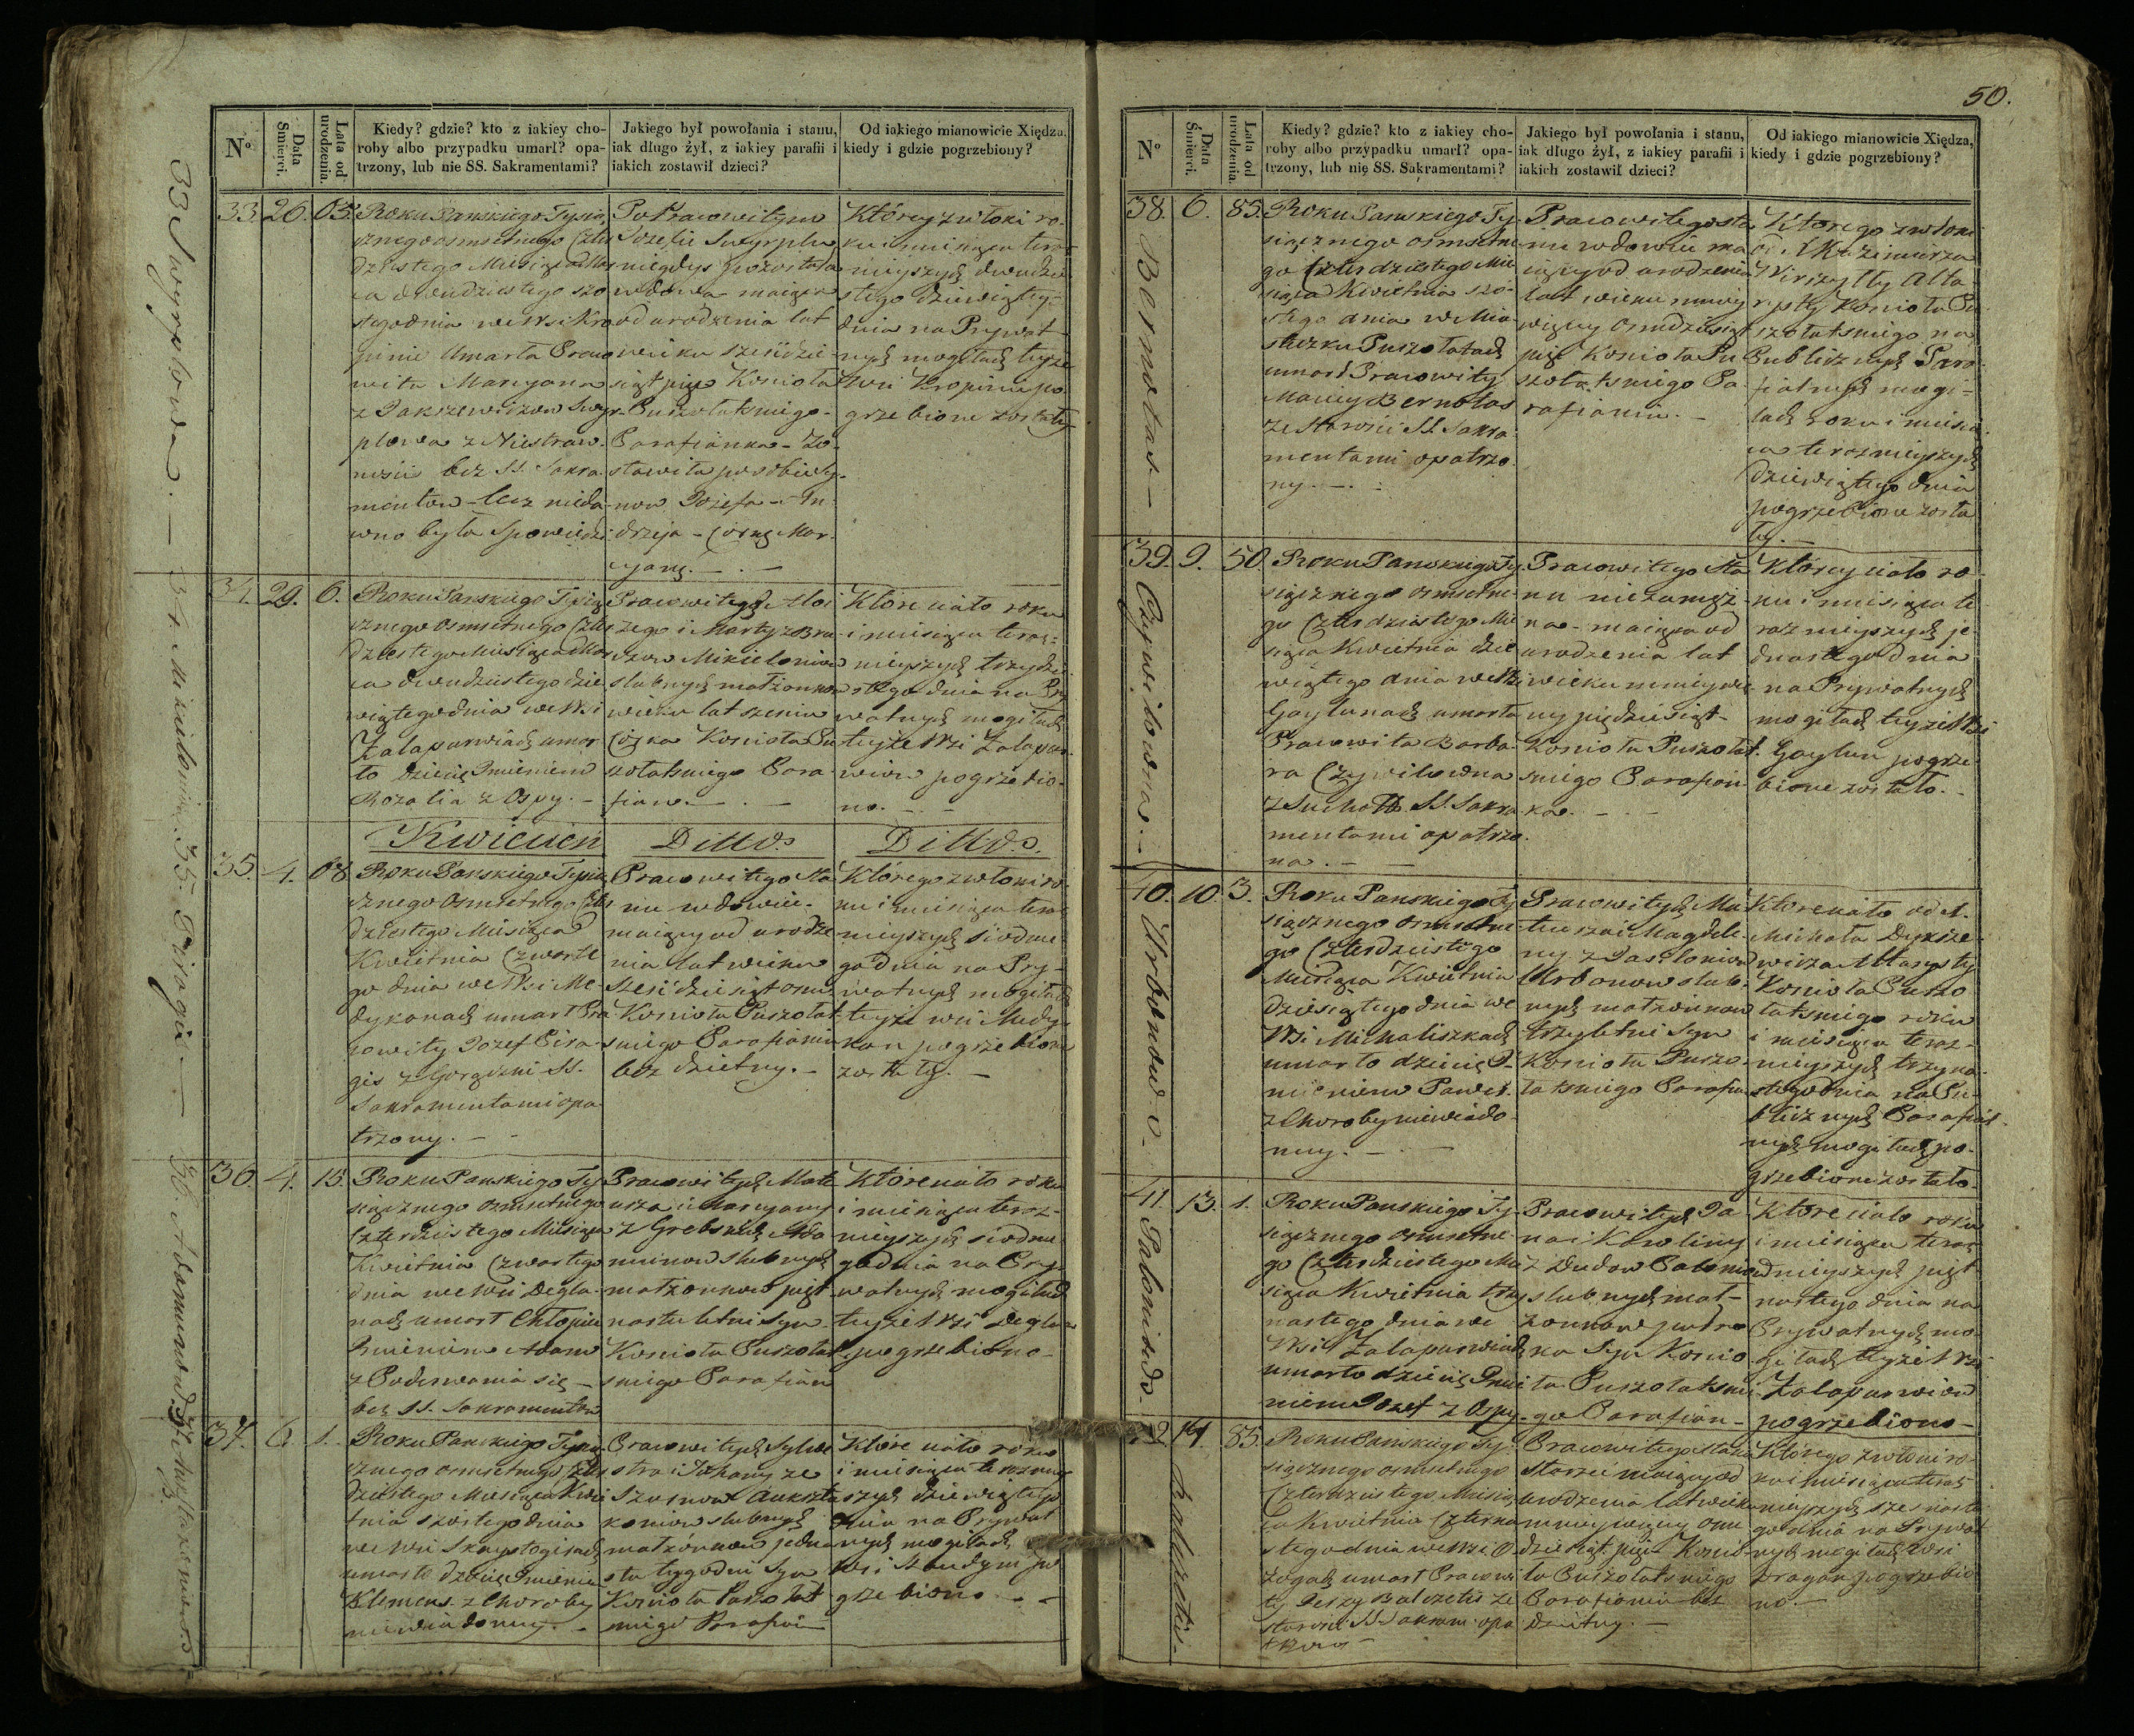 50.
N°
Data Śmierci.
Lata od urodzenia.
Kiedy? gdzie? kto z iakiey cho-
roby albo przypadku umarł? opa-
trzony, lub nie SS. Sakramentami?
Jakiego był powołania i stanu,
iak długo żył, z iakiey parafii i
iakich zostawił dzieci?
Od iakiego mianowicie Xiędza,
kiedy i gdzie pogrzebiony?
33 Swyrplowa. —
33. 26. 65.
Roku Pańskiego Tysią
cznego osmsetnego Czter
dziestego Miesiąca Mar
ca dwudziestego szo
stego dnia we Wsi Kro
pinie Umarła Praco
wita Maryana
z Jakszewiczow Swyr-
plowa z Niestraw-
ności bez SS. Sakra
mentow lecz nieda
wno była Spowiedzi
Po Pracowitym
Jozefie Swyrplu
niegdys pozostała
wdowa maiąca
od urodzenia lat
wieku sześćdzie-
siąt pięć Kościoła
Puszołatskiego
Parafianka - Zo-
stawiła po sobie Sy-
now Jozefa - An-
drzeja - Corkę Mar-
yanę. —
Którey zwłoki ro-
ku i miesiąca teraz
nieyszych dwudzie
stego dziewiątego
dnia na Prywat-
nych mogiłach teyże
Wsi Kropiniu po-
grzebione zostały
34. Mikieloniu.
34. 29. 6.
Roku Pańskiego Tysią
cznego Osmsetnego Czter
dziestego Miesiąca Mar
ca dwudziestego dzie
wiątego dnia we Wsi
Załaparwiach umar
ło dziecie Imieniem
Rozalia z Ospy. —
Pracowitych Aloi
zego i Marty z
Mikieloniow
slubnych małżonkow
wieku lat sześciu
Corka Kościoła Pu
szołatskiego Para
fian. —
Które ciało roku
i miesiąca teraz-
nieyszych trzydzie
stego dnia na Pry
watnych mogiłach
teyże Wsi Załapar
wiow pogrzebio-
no. —
Kwiecień Ditto. Ditto.
35. Piragis —
35. 4. 68
Roku Pańskiego Tysią
cznego Osmsetnego Czter
dziestego Miesiąca
Kwietnia Czwarte
go dnia we Wsi Me-
dykonach umarł Pra
cowity Jozef Pira-
gis z Gorączki SS.
Sakramentami opa
trzony. —
Pracowitego sta
nu wdowiec
maiący od urodze
nia lat wieku
sześćdziesiąt osm
Kościoła Puszołat
skiego Parafianin
bezdzietny. —
Którego zwłoki ro-
ku i miesiąca teraz
nieyszych siodme
go dnia na Pry-
watnych mogiłach
teyże wsi Medy
kon pogrzebione
zostały. —
36. Adamonow.
36. 4. 15.
Roku Pańskiego Ty
siącznego Osmsetnego
Czterdziestego Miesiąca
Kwietnia Czwartego
dnia we Wsi Degla-
nach umarł Chłopiec
Imieniem Adam
z Poderwania się —
bez SS. Sakramentow
Pracowitych Mate
usza i Maryanny
z Grebskich Ada
monow slubnych
małżonkow pięt
nastu letni Syn
Kościoła Puszołat
skiego Parafian
Które ciało roku
i miesiąca teraz-
nieyszych siodme
go dnia na Pry
watnych mogiłach
teyże Wsi Deglan
pogrzebiono —
37. 6. 1.
Roku Pańskiego Tysią
cznego osmsetnego Czter
dziestego Miesiąca Kwie
tnia szostego dnia
we Wsi Skrystogirach
umarło dziecie Imieniem
Klemens z Choroby
niewiadomey. —
Pracowitych Sylwe
stra i Johany ze
Szusnow Auksztu
koniow slubnych
małżonkow jedna
sto tygodni Syn
Kościoła Puszołat
skiego Parafian
Które ciało roku
i miesiąca teraznie
szych dziewiątego
dnia na Prywat
nych mogiłach
Wsi po
grzebiono —
N°
Data Śmierci.
Lata od urodzenia.
Kiedy? gdzie? kto z iakiey cho-
roby albo przypadku umarł? opa-
trzony, lub nie SS. Sakramentami?
Jakiego był powołania i stanu,
iak długo żył, z iakiey parafii i
iakich zostawił dzieci?
Od iakiego mianowicie Xiędza,
kiedy i gdzie pogrzebiony?
Bernotas —
38. 6. 85.
Roku Pańskiego Ty-
siącznego osmsetne
go Czterdziestego Mie
siąca Kwietnia szo-
stego dnia w Mia-
steczku Puszołatach
umarł Pracowity
Maciey Bernotas
ze starości SS. Sakra
mentami opatrzo
ny. —
Pracowitego sta
nu wdowiec ma
iący od urodzenia
lat wieku mniey
więcey osmdziesiąt
pięć Kościoła Pu
szołatskiego Pa-
rafianin. —
Którego zwłoki
od X. Kazimierza
Wirszyłły Alta-
rysty Kościoła Pu
szołatskiego na
Publicznych Para
fialnych mogi-
łach roku i miesią
ca teraznieyszych
dziewiątego dnia
pogrzebione zosta
ły. —
Czywilowna —
39. 9. 50.
Roku Pańskiego Ty
siącznego osmsetne-
go Czterdziestego Mie
siąca Kwietnia dzie
wiątego dnia we Wsi
Gaylunach umarła
Pracowita Barba-
ra Czywilowna
z Suchot SS. Sakra
mentami opatrzo
na. —
Pracowitego sta
nu niezamęż-
na - maiąca od
urodzenia lat
wieku mniey wię
cey pięćdziesiąt
Kościoła Puszołat
skiego Parafian
ka. —
Którey ciało ro-
ku i miesiąca te
raz nieyszych je-
dnastego dnia
na Prywatnych
mogiłach teyże Wsi
Gaylun pogrze
bione zostało. —
Urbonowo —
40. 10. 3.
Roku Pańskiego Ty
siącznego osmsetne
go Czterdziestego
Miesiąca Kwietnia
dziesiątego dnia we
Wsi Michaliszkach
umarło dziecie I-
mieniem Paweł
z Choroby niewiado
mey. —
Pracowitych Ma
teusza i Magdale
ny z Jasiloniow
Urbonow slub-
nych małżonkow
trzyletni Syn
Kościoła Puszo-
łatskiego Parafian
Które ciało od X.
Michała Dyksze-
wicza Altarysty
Kościoła Puszo
łatskiego roku
i miesiąca teraz-
nieyszych trzyna
stego dnia na Pu-
blicznych Parafial
nych mogiłach po-
grzebione zostało.
Patoniado —
41. 13. 1.
Roku Pańskiego Ty-
siącznego osmsetne
go Czterdziestego Mie
siąca Kwietnia trzy
nastego dnia we
Wsi Załaparwiach
umarło dziecie Imie
niem Jozef z Ospy
Pracowitych Ja
na i Karoliny
z Dudow
slubnych mał-
żonkow
Syn Kościo
ła Puszołatskie
go Parafian —
Które ciało roku
i miesiąca teraz
nieyszych pięt
nastego dnia na
Prywatnych mo-
giłach teyże Wsi
Załaparwiow
pogrzebiono —
Balczetis —
42. 14. 85.
Roku Pańskiego Ty-
siącznego osmsetnego
Czterdziestego Miesią
ca Kwietnia Czterna
stego dnia we Wsi O-
żogach umarł Pracowi
ty Jerzy Balczetis ze
starości SS. Sakram: opa
trzony —
Pracowitego stanu
starzec maiący od
urodzenia lat wieku
mniey więcey osm
dziesiąt pięć Kościo
ła Puszołatskiego
Parafianin bez
dzietny. —
Którego zwłoki ro-
ku i miesiąca teraz
nieyszych szesnaste
go dnia na Prywat
nych mogiłach Wsi
Dragan pogrzebio
no. —